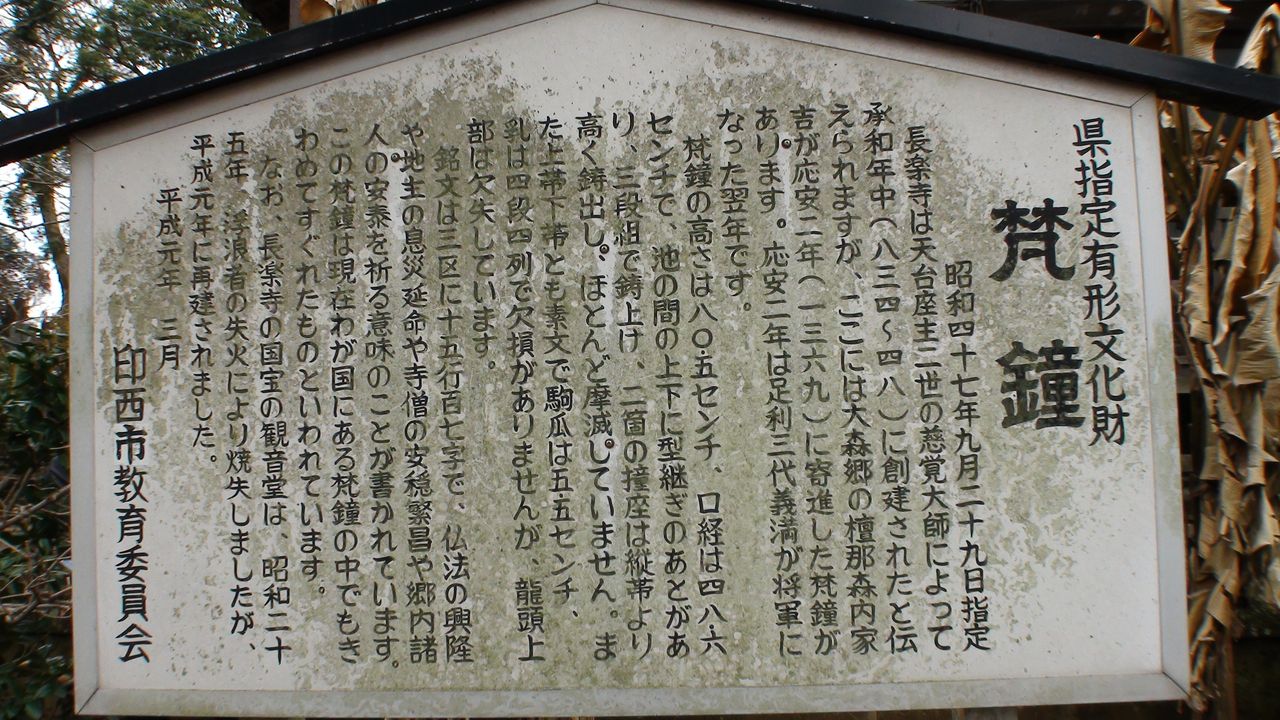 県指定有形文化財
梵鐘
昭和四十七年九月二十九日指定
長楽寺は天台座主二世の慈覚大師によって
承和年中（八三四～四八）に創建されたと伝
えられますが、ここには大森郷の檀那森内家
吉が応安二年（一三六九）に寄進した梵鐘が
あります。応安二年は足利三代義満が将軍に
なった翌年です。
梵鐘の高さは八〇・五センチ、口経は四八・六
センチで、池の間の上下に型継ぎのあとがあ
り、三段組で鋳上げ、二箇の撞座は縦帯より
高く鋳出し。ほとんど摩滅していません。ま
た上帯下帯とも素文で駒爪は五・五センチ、
乳は四段四列で欠損がありませんが、龍頭上
部は欠失しています。
銘文は三区に十五行百七字で、仏法の興隆
や地主の息災延命や寺僧の安穏繁昌や郷内諸
人の安泰を祈る意味のことが書かれています。
この梵鐘は現在わが国にある梵鐘の中でもき
わめてすぐれたものといわれています。
なお、長楽寺の国宝の観音堂は、昭和二十
五年、浮浪者の失火により焼失しましたが、
平成元年に再建されました。
平成元年 三月
印西市教育委員会